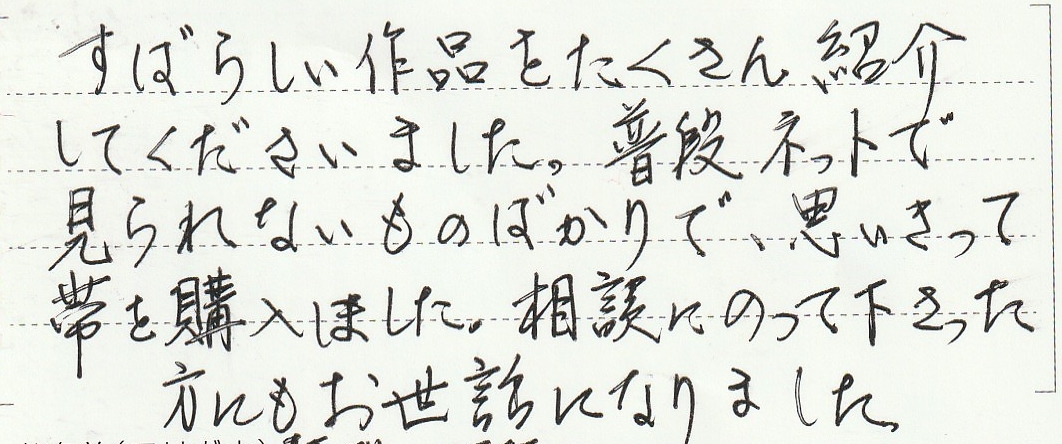 すばらしい作品をたくさん紹介
してくださいました。普段ネットで
見られないものばかりで、思いきって
帯を購入しました。相談にのって下さった
方にもお世話になりました。